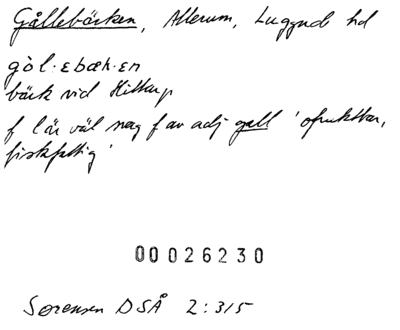 Gållebäcken, Allerum, Luggude hd
gòl·ɛbæk·ɛn
bäck vid Hittarp
f lär väl neg f av adj gall 'ofruktbar,
fiskfattig'
00026230
Sørensen DSÅ 2:315